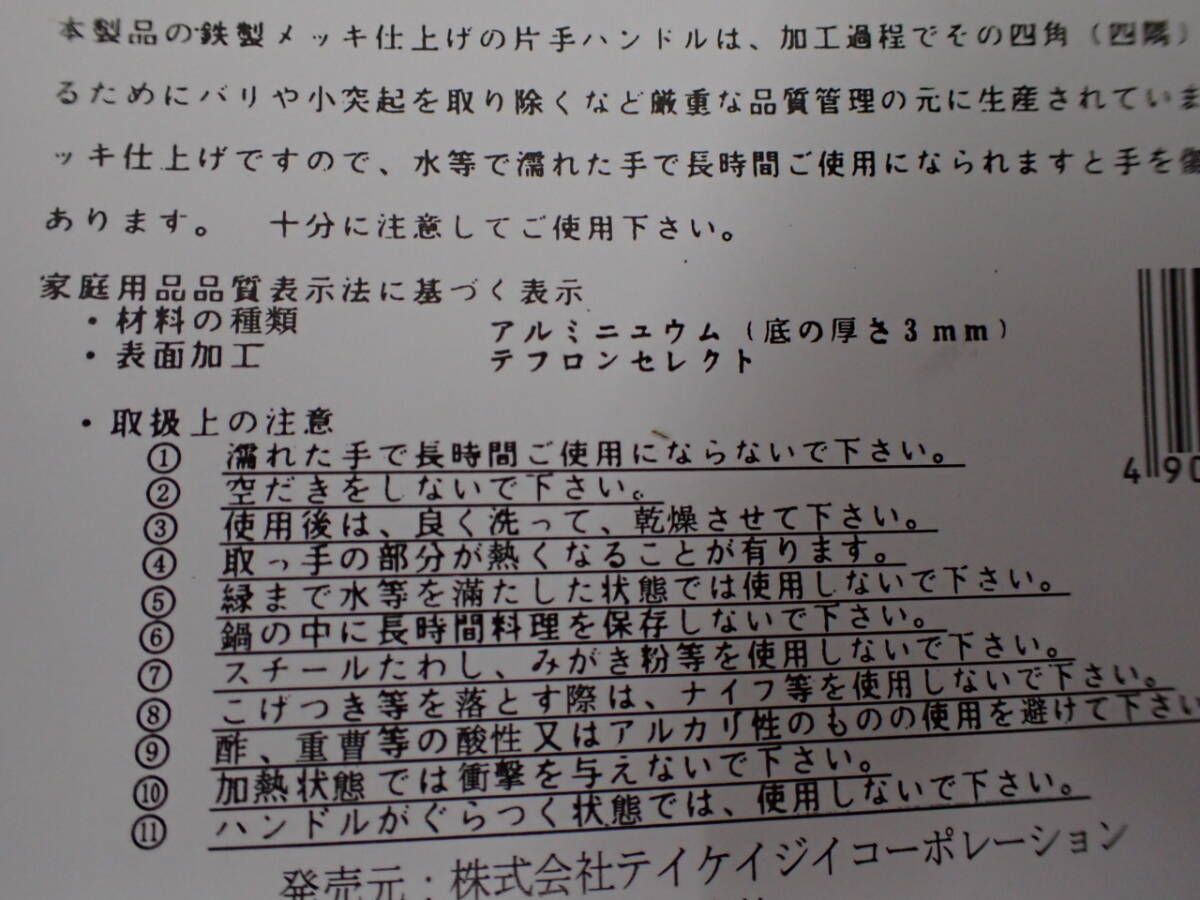 本製品の鉄製メッキ仕上げの片手ハンドルは、加工過程でその四角（四隅）
るためにバリや小突起を取り除くなど厳重な品質管理の元に生産されていま
ッキ仕上げですので、水等で濡れた手で長時間ご使用になられますと手を傷
あります。 十分に注意してご使用下さい。
家庭用品品質表示法に基づく表示
・材料の種類 アルミニュウム（底の厚さ3mm）
・表面加工 テフロンセレクト
・取扱上の注意
① 濡れた手で長時間ご使用にならないで下さい。
② 空だきをしないで下さい。
③ 使用後は、良く洗って、乾燥させて下さい。
④ 取っ手の部分が熱くなることが有ります。
⑤ 縁まで水等を満たした状態では使用しないで下さい。
⑥ 鍋の中に長時間料理を保存しないで下さい。
⑦ スチールたわし、みがき粉等を使用しないで下さい。
⑧ こげつき等を落とす際は、ナイフ等を使用しないで下さい。
⑨ 酢、重曹等の酸性又はアルカリ性のものの使用を避けて下さい
⑩ 加熱状態では衝撃を与えないで下さい。
⑪ ハンドルがぐらつく状態では、使用しないで下さい。
発売元：株式会社テイケイジイコーポレーション
490